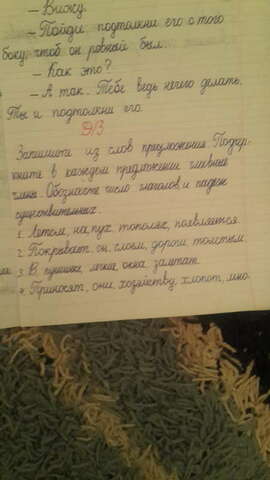 – Вижу.
– Пойди подтолкни его с того
боку, чтоб он ровный был.
– Как это?
– А так. Тебе ведь нечего делать.
Ты и подтолкни его.
Д/З
Запишите из слов предложения. Подчер-
кните в каждом предложении главные
члены. Обозначьте число глаголов и падеж
существительных.
1. Летом, на, пух, тополях, появляется.
2. Покрывает, он, слоем, дороги, толстым.
3. В, пушинки, лёгкие, окна, залетают.
4. Приносят, они, хозяйству, хлопот, мно